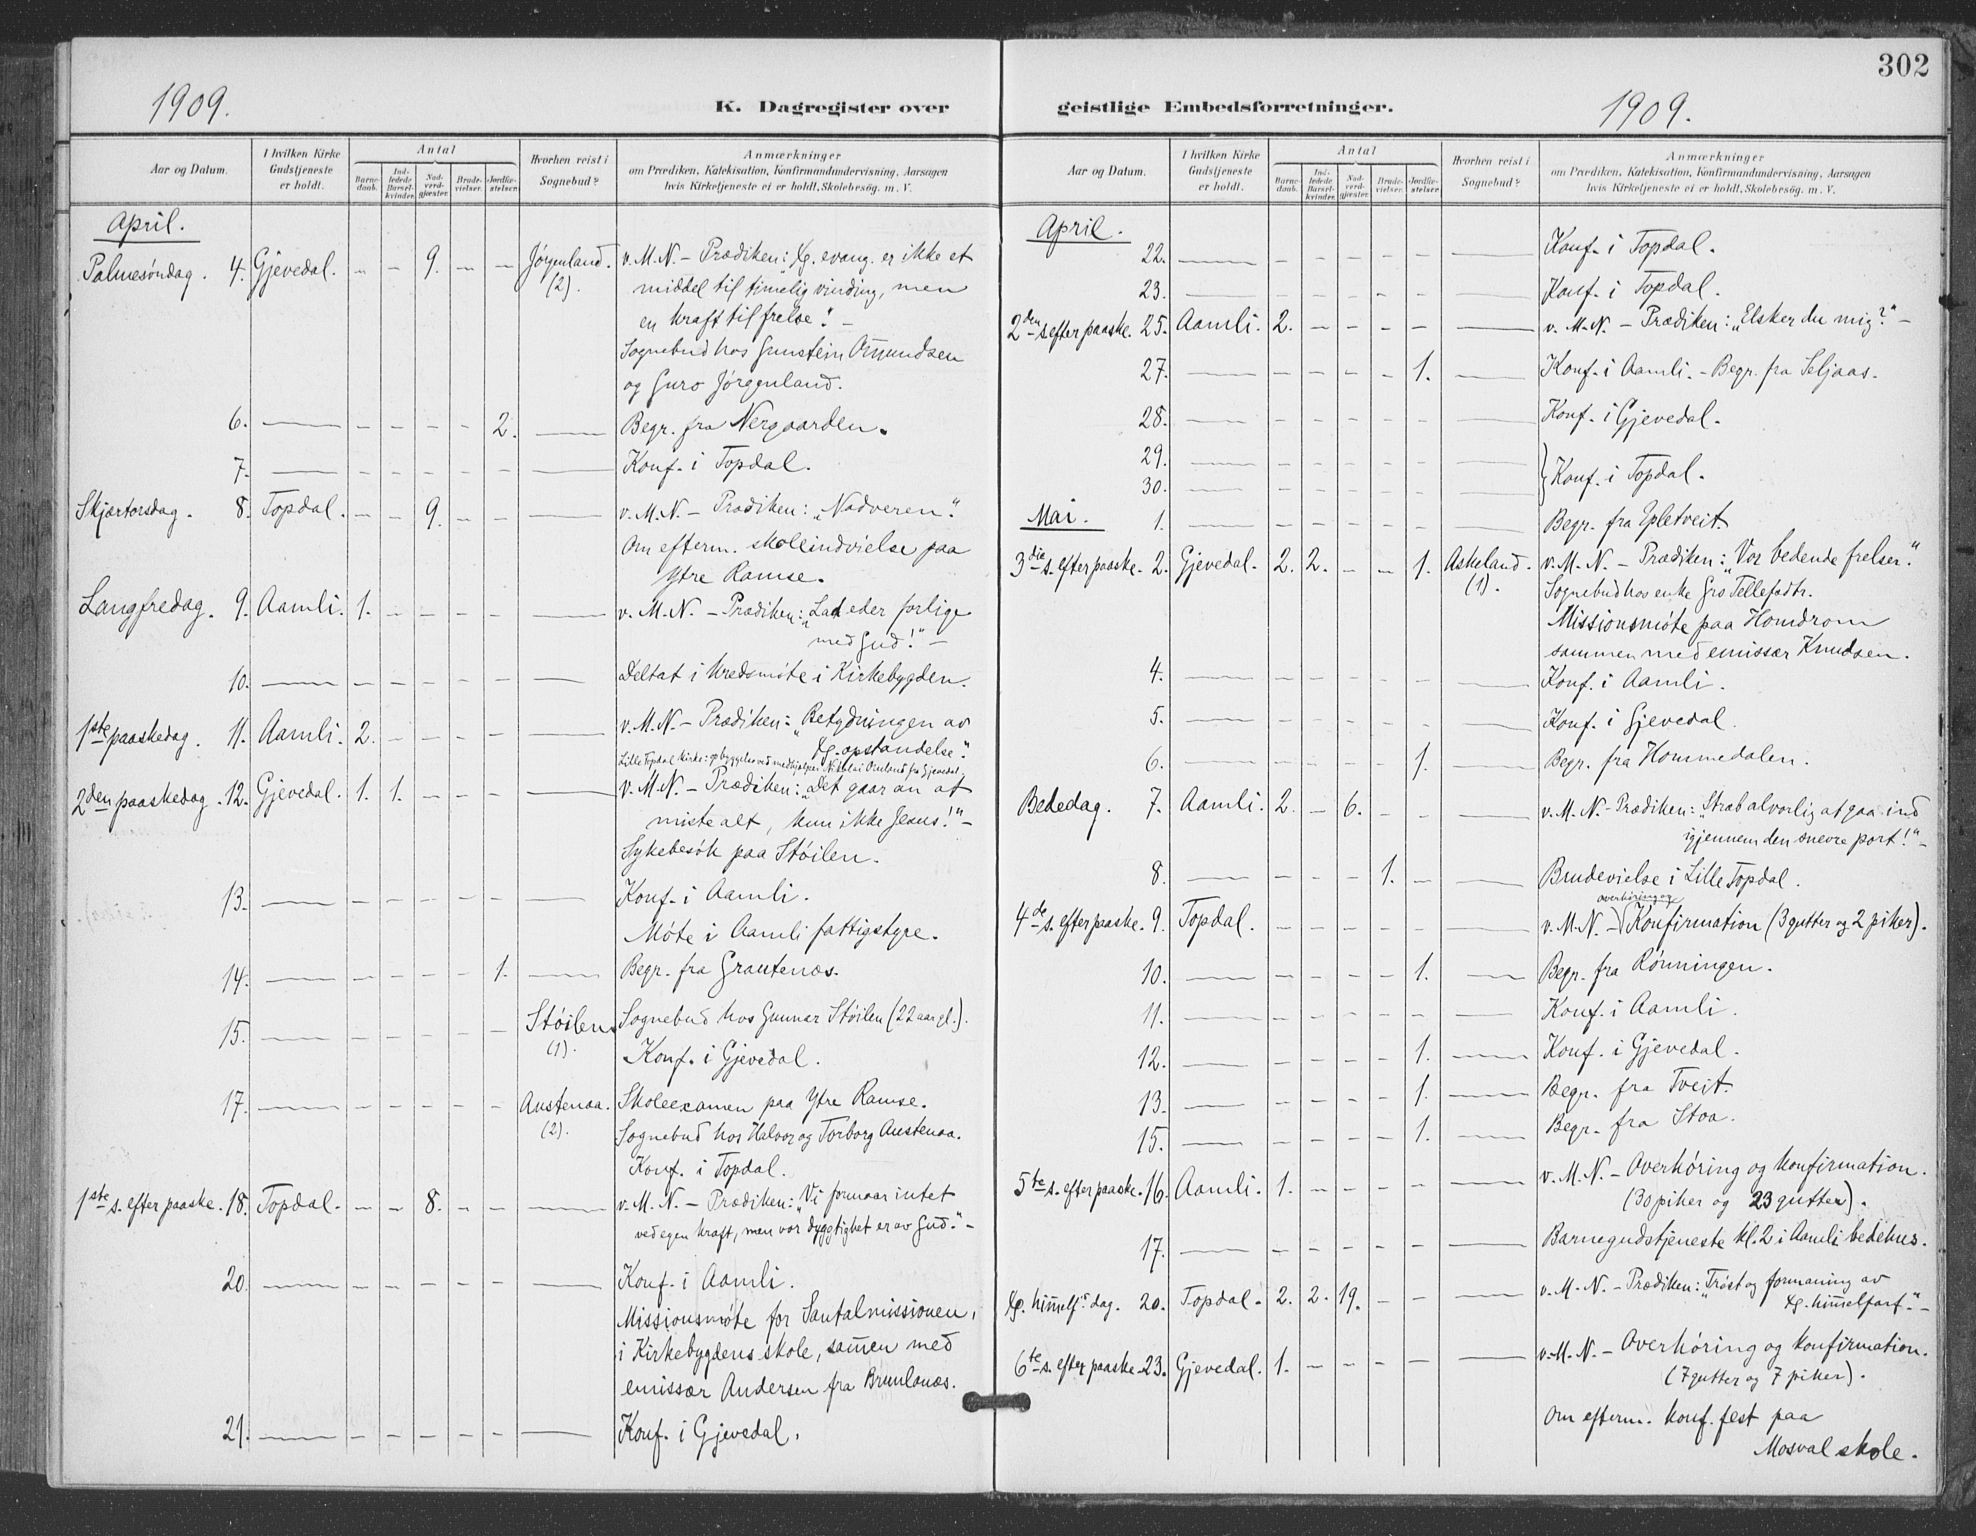 302
1909.
K. Dagregister over
geistlige Embedsforretninger.
1909.
Aar og Datum.
I hvilken Kirke Gudstjeneste er holdt.
Antal
Barnedaab.
Indledede Barselkvinder.
Nadverdgjester.
Brudevielser.
Jordfæstelser.
Hvorhen reist i Sognebud?
Anmærkninger
om Prædiken, Katekisation, Konfirmandundervisning, Aarsagen
hvis Kirketjeneste ei er holdt, Skolebesøg. m. V.
April.
Palmesöndag. 4. Gjevedal. – – 9. – – Jørgenland. v. M. N. – Prædiken: Xp. evang. er ikke et
(2). middel til timelig vinding, men
en kraft til frelse!" –
Sognebud hos Gunstein Omundsen
og Guro Jørgenland.
6. — – – – – 2. — Begr. fra Nergaarden.
7. — – – – – – — Konf. i Topdal.
Skjærtorsdag. 8. Topdal. – – 9. – – — v. M. N. – Prædiken: „Nadveren".
Om efterm. skoleindvielse paa
Ytre Ramse.
Langfredag. 9. Aamli. 1. – – – – — v. M. N. – Prædiken: „Lad eder forlige
med Gud!" –
10. — – – – – – — Deltat i kredsmöte i Kirkebygden.
1ste paaskedag. 11. Aamli. 2. – – – – — v. M. N. – Prædiken: „Betydningen av
Xp. opstandelse".
Lille Topdal kirke: opbyggelse ved medhjælper Nikolai Omland fra Gjevedal.
2den paaskedag. 12. Gjevedal. 1. 1. – – – — v. M. N. – Prædiken: „Det gaar an at
miste alt, kun ikke Jesus!" –
Sykebesök paa Stöilen.
13. — – – – – – — Konf. i Aamli.
Möte i Aamli fattigstyre.
14. — – – – – 1. — Begr. fra Grautenæs.
15. — – – – – – Stöilen. Sognebud hos Gunnar Stöilen (22 aar gl.).
(1). Konf. i Gjevedal.
17. — – – – – – Austenaa. Skoleexamen paa Ytre Ramse.
(2). Sognebud hos Halvor og Torborg Austenaa.
Konf. i Topdal.
1ste s. efter paaske. 18. Topdal. – – 8. – – — v. M. N. – Prædiken: „Vi formaar intet
ved egen kraft, men vor dygtighet er av Gud." –
20. — – – – – – — Konf. i Aamli.
Missionsmöte for Santalmissionen,
i Kirkebygdens skole, sam̄en med
emissær Andersen fra Brunlanæs.
21. — – – – – – — Konf. i Gjevedal.
Aar og Datum.
I hvilken Kirke Gudstjeneste er holdt.
Antal
Barnedaab.
Indledede Barselkvinder.
Nadverdgjester.
Brudevielser.
Jordfæstelser.
Hvorhen reist i Sognebud?
Anmærkninger
om Prædiken, Katekisation, Konfirmandundervisning, Aarsagen
hvis Kirketjeneste ei er holdt, Skolebesøg. m. V.
April.
22. — – – – – – — Konf. i Topdal.
23. — – – – – – — Konf. i Topdal.
2den s. efter paaske. 25. Aamli. 2. – – – – — v. M. N. – Prædiken: „Elsker du mig?" –
27. — – – – – 1. — Konf. i Aamli. – Begr. fra Seljaas.
28. — – – – – – — Konf. i Gjevedal.
29. — – – – – – —
30. — – – – – – — } Konf. i Topdal.
Mai.
1. — – – – – – — Begr. fra Epletveit.
3die s. efter paaske. 2. Gjevedal. 2. 2. – – 1. Askeland. v. M. N. – Prædiken: „Vor bedende frelser".
(1). Sognebud hos enke Gro Tellefsdtr.
Missionsmöte paa Homdrom
sammen med emissær Knudsen.
4. — – – – – – — Konf. i Aamli.
5. — – – – – – — Konf. i Gjevedal.
6. — – – – – 1. — Begr. fra Hommedalen.
Bededag. 7. Aamli. 2. – 6. – – — v. M. N. – Prædiken: „Stræb alvorlig at gaa ind
igjennem den snevre port!" –
8. — – – – 1. – — Brudevielse i Lille Topdal.
overhöring og
4de s. efter paaske. 9. Topdal. – – – – – — v. M. N. – Konfirmation (3 gutter og 2 piker).
10. — – – – – 1. — Begr. fra Rönningen.
11. — – – – – – — Konf. i Aamli.
12. — – – – – 1. — Konf. i Gjevedal.
13. — – – – – 1. — Begr. fra Tveit.
15. — – – – – 1. — Begr. fra Stoa.
5te s. efter paaske. 16. Aamli. 1. – – – – — v. M. N. – Overhöring og konfirmation.
(30 piker og 23 gutter).
17. — – – – – – — Barnegudstjeneste kl. 2 i Aamli bedehus.
Xp. him̄elf.s dag. 20. Topdal. 2. 2. 19. – – — v. M. N. – Prædiken: „Tröst og formaning av
Xp. him̄elfart". –
6te s. efter paaske. 23. Gjevedal. 1. – – – – — v. M. N. – Overhöring og konfirmation.
(7 gutter og 7 piker).
Om efterm. konf. fest paa
Mosval skole.